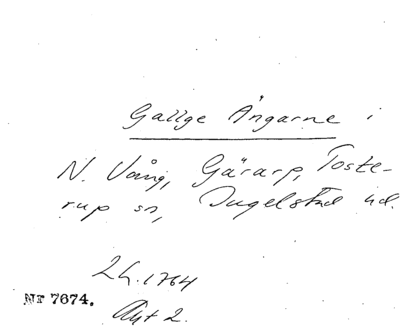 Gallge Ängarne i
N. Vång, Gärarp, Toste-
rup sn, Ingelstad hd.
LH. 1764
Akt 2.
Nr 7674.